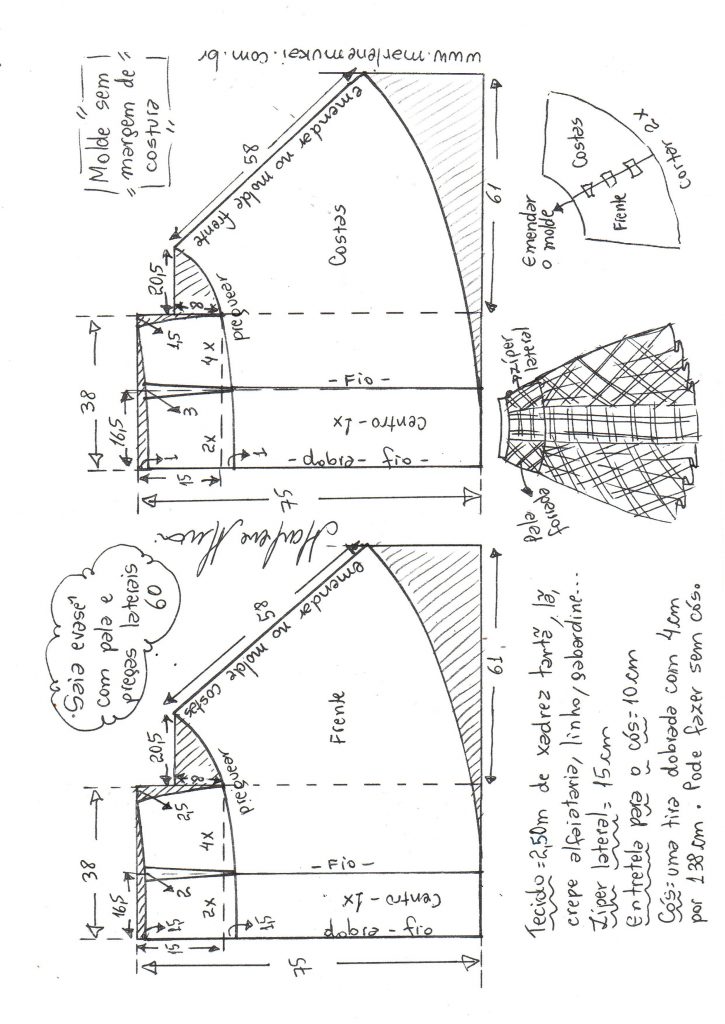 "Saia evasê"
com pala e
pregas laterais
60
"Molde sem"
margem de
"costura"
www.marlenemukai.com.br
38
16,5
20,5
58
emendar no molde costas
15
1,5
2
2,5
8
2x
4x
1,5
preguear
Frente
- Fio -
Centro - 1x
dobra - fio
75
61
38
16,5
20,5
58
emendar no molde frente
15
1
3
1,5
8
2x
4x
1
preguear
Costas
- Fio -
Centro - 1x
dobra - fio -
75
61
Tecido = 2,50m de xadrez tartã, lã,
crepe alfaiataria, linho, gabardine...
Zíper lateral = 15cm
Entretela para o cós = 10cm
Cós = uma tira dobrada com 4cm
por 138cm. Pode fazer sem cós.
Pala
forrada
zíper
lateral
Emendar
o molde
Costas
Frente
Cortar 2x